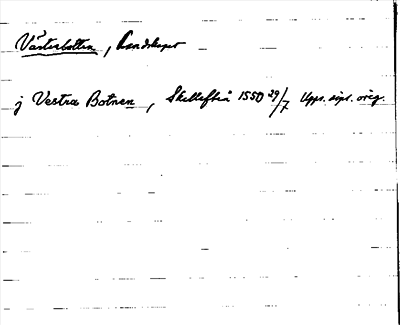 Västerbotten, landskapet
j Vestra Botnen, Skellefteå 1550 29/7 Upps. sigt. orig.